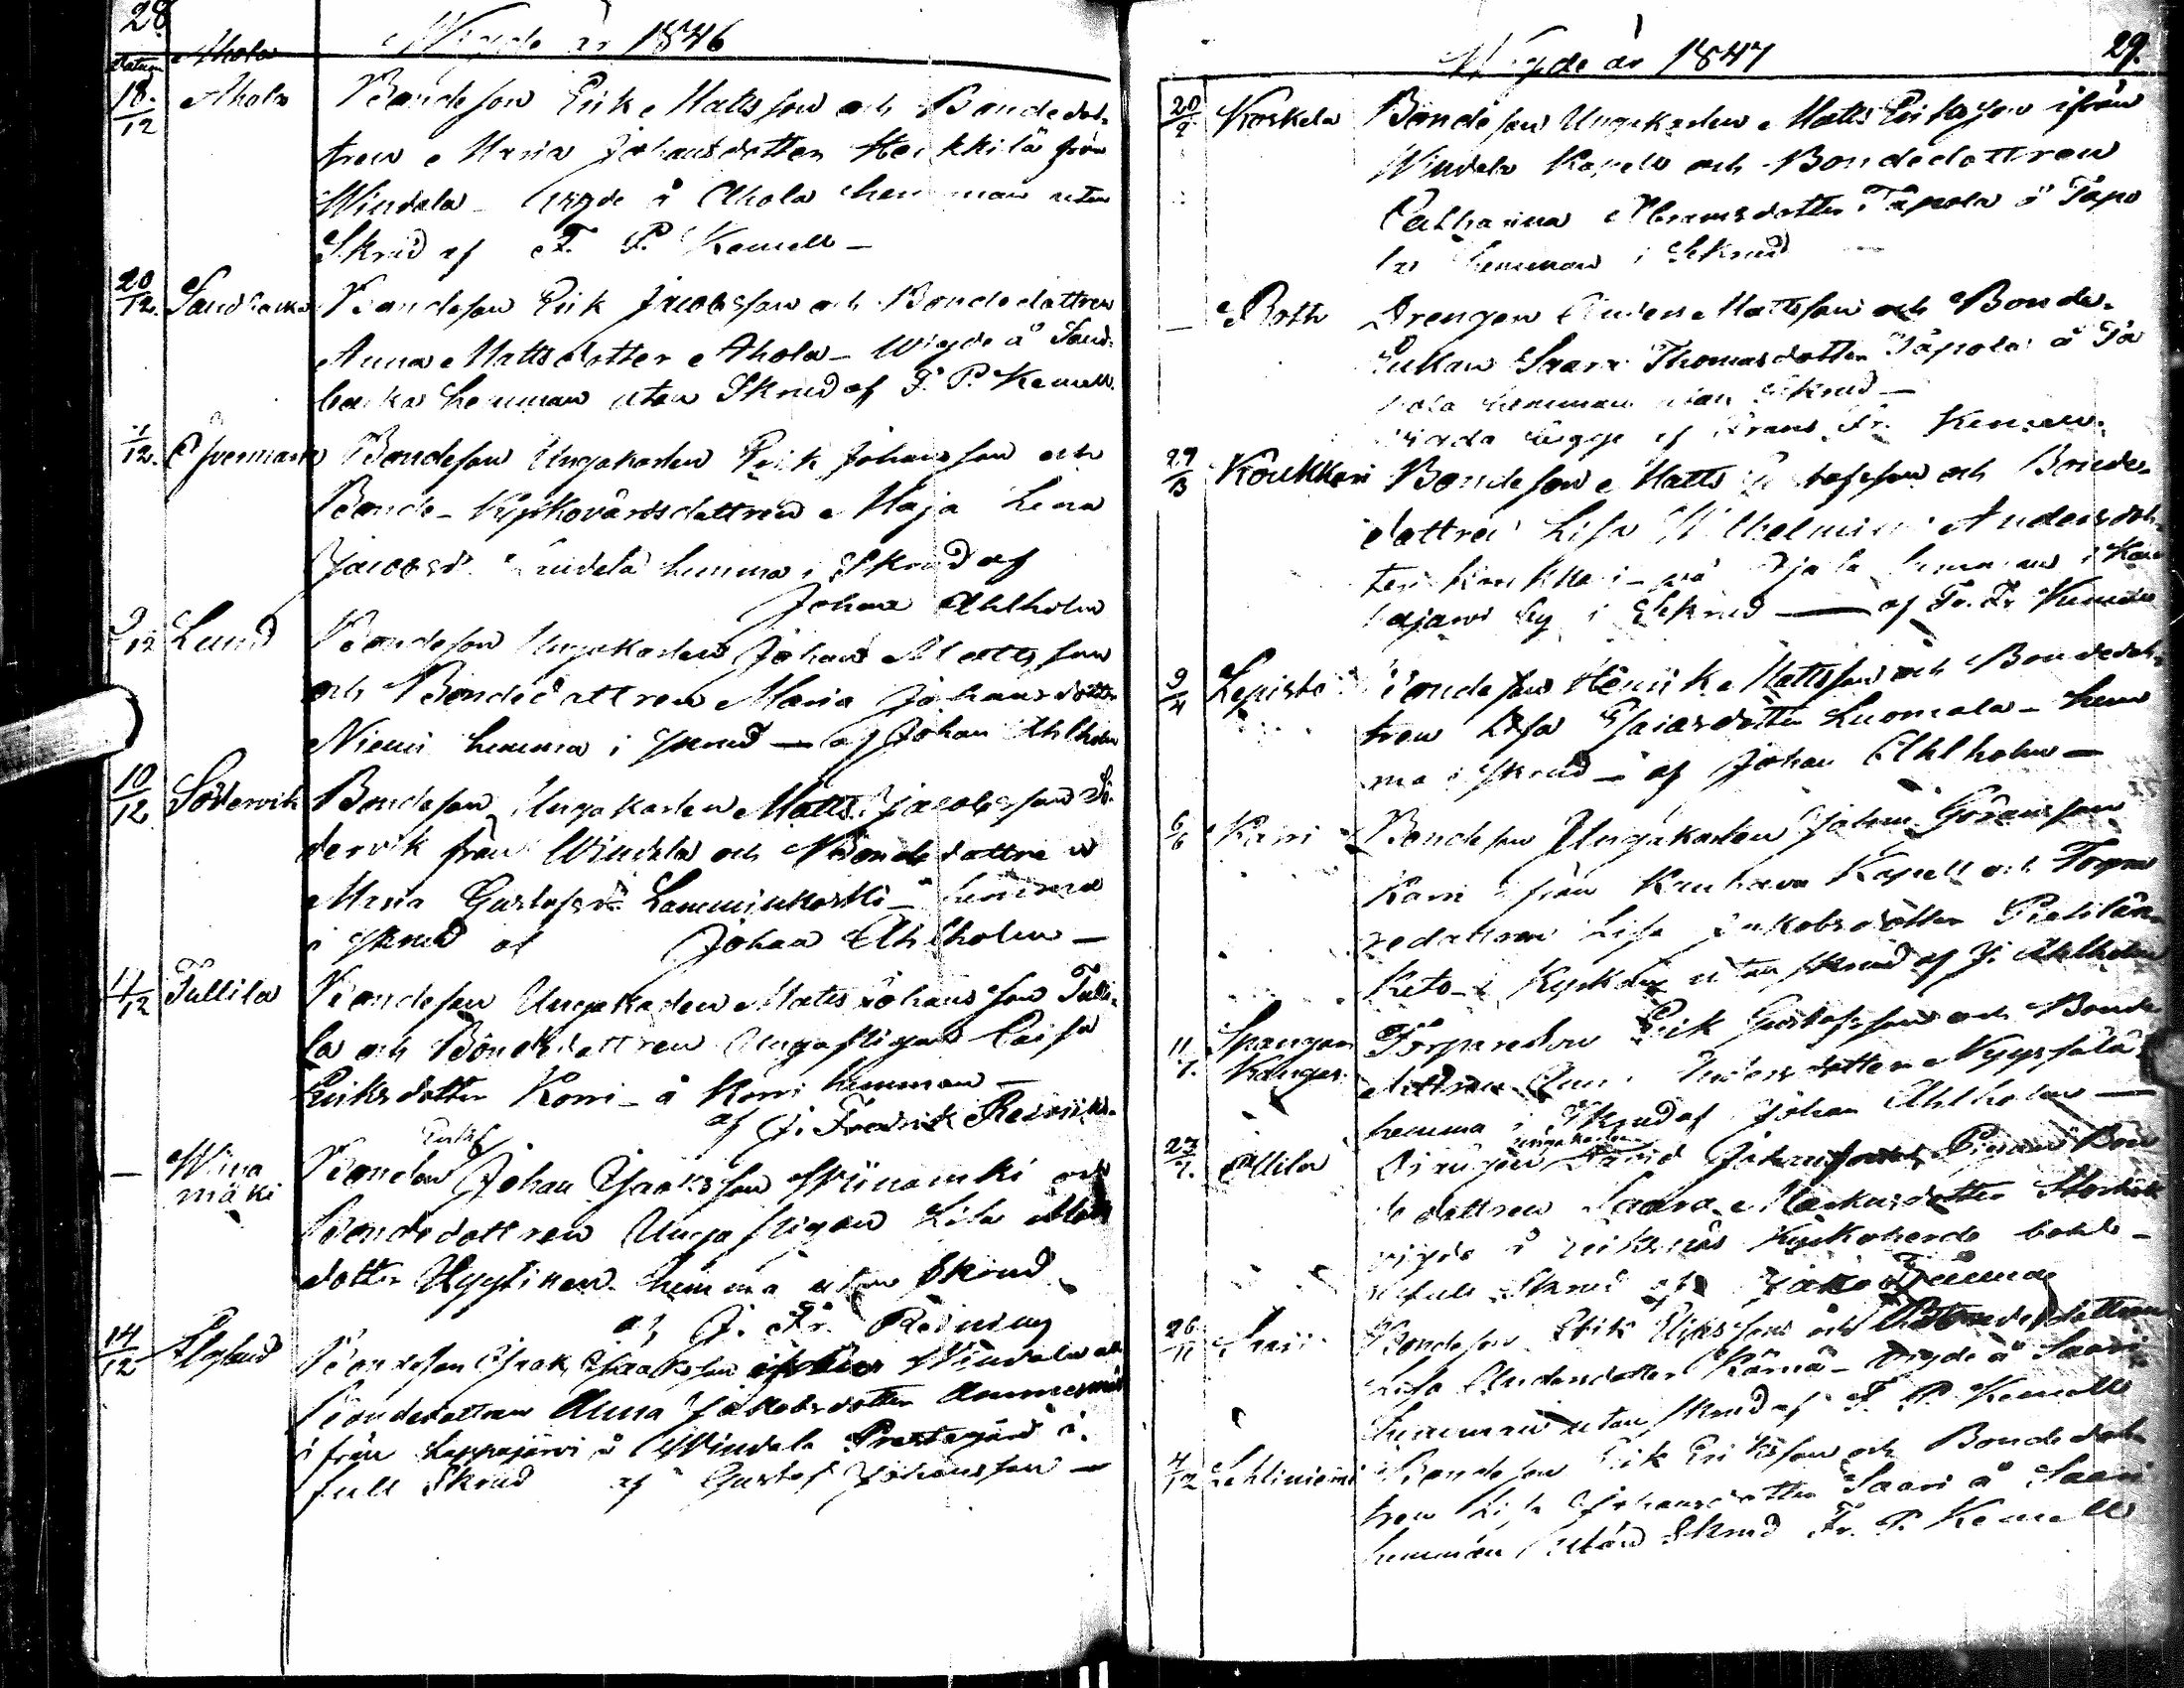 28.
Wigde år 1846
Datum Ahola
18/12 Ahola Bondeson Erik Mattsson och Bondedot-
tren Maria Johansdotter Heikkilä från
Windala - Wigde å Ahola hemman utan
Skrud af F. P. Kemell -
20/12. Sandbacka Bondeson Erik Jacobsson och Bondedottren
Anna Mattsdotter Ahola - Wigde å Sand-
backa hemman utan Skrud af F. P. Kemell.
/12. Öfvermark Bondeson Ungakarlen Erik Johansson och
Bonde- Kyrkovärdsdottren Maja Lena
Jacobsd. hemma i Skrud af
Johan Ahlholm
9/12 Lund Bondeson Ungakarlen Johan Mattsson
och Bondedottren Maria Johansdotter
Niemi hemma i skrud - af Johan Ahlholm
10/12 Södervik Bondeson Ungakarlen Matts Jacobsson Sö-
dervik från Windala och Bondedottren
Maria Gustafsd. Lamminkoski - hemma
i skrud af Johan Ahlholm -
11/12 Tullila Bondeson Ungakarlen Matts Johansson Tulli-
la och Bondedottren Ungafligan Caisa
Eriksdotter Korri - å Korri hemman -
af J. Fredrik Reinius
- Wina
mäki Bonden Enkl. Johan Isaksson Wiinamäki och
Bondedottren Ungafligan Lisa Matts
dotter Hyytinen hemma utan Skrud
af J. Fr. Reinius
14/12 Åkslund Bondeson Isak Isaksson ifrån Windala och
Bondedottren Anna Jakobsdotter Ammesmäki
ifrån Lappajärvi å Windala Prestegård i
full Skrud af Gustaf Johansson -
Wigde år 1847
29.
20/2 Koskela Bondeson Ungakarlen Matts Eriksson ifrån
Windala Kapell och Bondedottren
Catharina Abramsdotter Tapola å Tapo
la hemman i Skrud
- Roth Drengen Anders Mattsson och Bonde-
Enkan Saara Thomasdotter Tapola å Ta
pola hemman utan Skrud -
Wigda begge af Frans Fr. Kemell.
29/3 Koukkari Bondeson Matts Gustafsson och Bonde-
dottren Lisa Wilhelmina Andersdot-
ter Koukkari - på hemman i
by i Skrud - af Fr. Fr Kemell
9/4 Lepistö Bondeson Henrik Mattsson och Bondedot-
tren Lisa Esaiasdotter Luomala - hem
ma i skrud - af Johan Ahlholm -
6/6 Karri Bondeson Ungakarlen Johan Göransson
Karri från Kauhava Kapell och Torpa
redottren Lisa Jakobsdotter Pietilän-
keto - i Kyrkan utan skrud af J. Ahlholm
11/7. Spangar
Kangas Torparedren Erik Gustafsson och Bonde
dottren Anna Andersdotter Nygpsälä
hemma i Skrud af Johan Ahlholm -
23/7. Ollila Drängen ungakarlen David Johansson och Pigan Bon
dedottren Saara Markusdotter
wigde å Kyrkoherde bohle -
i full Skrud af
26/11 Saari Bondeson Erik Eriksson och Bondedottren
Lisa Andersdotter Kärnä - Wigde å Saari
hemman utan skrud af F. P. Kemell
4/12 Lehtiniemi Bondeson Erik Eriksson och Bondedot-
tren Lisa Johansdotter Saari å Saari
hemman utan Skrud Fr. P. Kemell